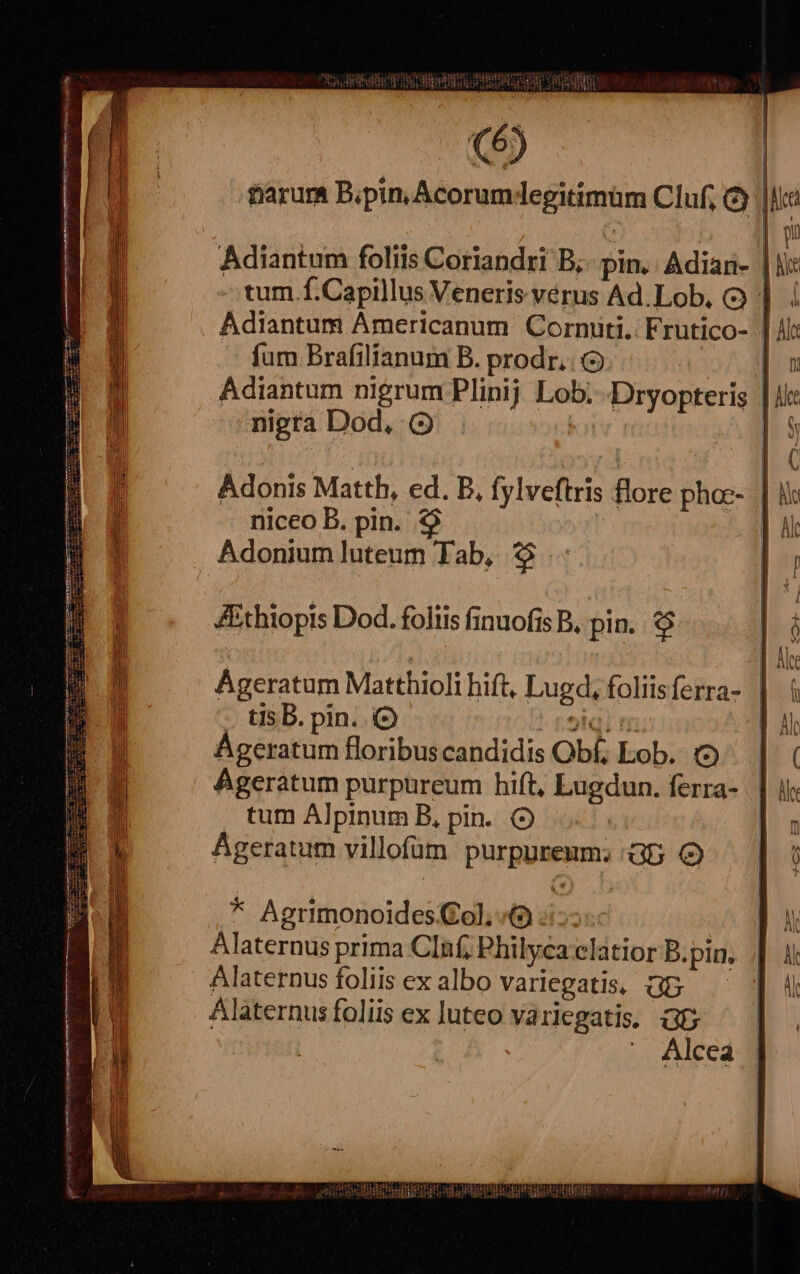 (6)
narum B.pin. Acorum legitimum Cluſ. ☉
Adiantum foliis Coriandri B. pin. Adian-
tum ſ. Capillus Veneris verus Ad. Lob. ☉
Adiantum Americanum Cornuti. Frutico-
ſum Braſilianum B. prodr. ☉
Adiantum nigrum Plinij Lob. Dryopteris
nigra Dod. ☉
Adonis Matth. ed. B. ſylveſtris flore phœ-
niceo B. pin.
Adonium luteum Tab.
Æthiopis Dod. foliis ſinuoſis B. pin.
Ageratum Matthioli hiſt. Lugd. foliis ſerra-
tis B. pin. ☉
Ageratum floribus candidis Obſ. Lob. ☉
Ageratum purpureum hiſt. Lugdun. ſerra-
tum Alpinum B. pin. ☉
Ageratum villoſum purpureum. ☉
* Agrimonoides Col. ☉
Alaternus prima Cluſ. Philyca elatior B. pin.
Alaternus foliis ex albo variegatis.
Alaternus foliis ex luteo variegatis.
Alcea